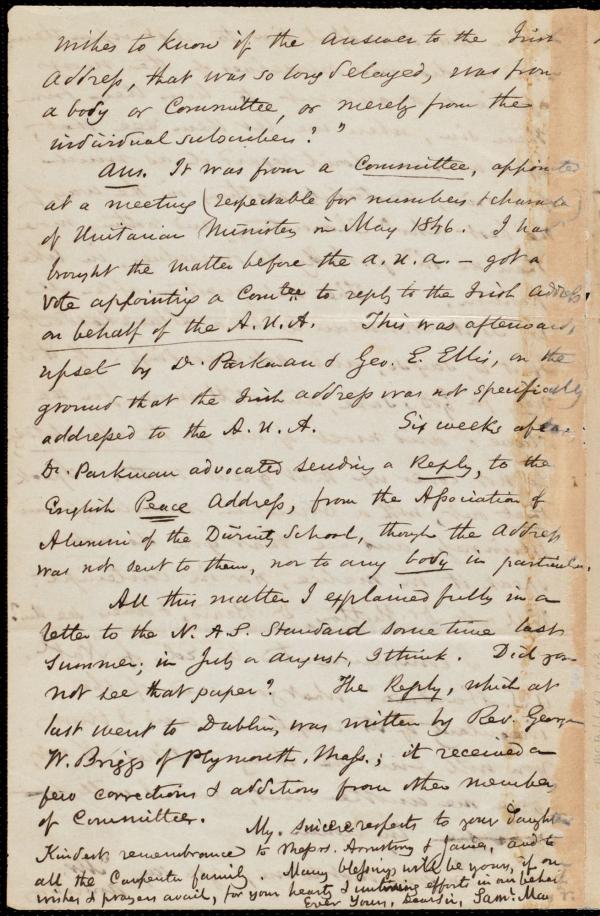 wishes to know if the answer to the Irish
Address, that was so long delayed, was from
a body or Committee, or merely from the
individual subscribers?"
Ans. It was from a Committee, appointed
at a meeting (respectable for numbers & character)
of Unitarian Ministers in May 1846. I had
brought the matter before the A. U. A. — got a
vote appointing a Comtee to reply to the Irish address,
on behalf of the A. U. A. This was afterwards
upset by Dr. Parkman & Geo. E. Ellis, on the
ground that the Irish address was not specifically
addressed to the A. U. A. Six weeks after
Dr. Parkman advocated sending a Reply, to the
English Peace Address, from the Association of
Alumni of the Divinity School, though the Address
was not sent to them, nor to any body in particular.
All this matter I explained fully in a
letter to the N. A. S. Standard some time last
Summer; in July or August, I think. Did you
not see that paper? The Reply, which at
last went to Dublin, was written by Rev. George
W. Briggs of Plymouth, Mass.; it received a
few corrections & additions from other members
of Committee.
My sincere respects to your daughter
Kindest remembrance to Messrs. Armstrong & James, and to
all the Carpenter family. Many blessings will be yours, if our
wishes & prayers avail, for your hearty & untiring efforts in our behalf
Ever Yours, dear Sir, Saml. May